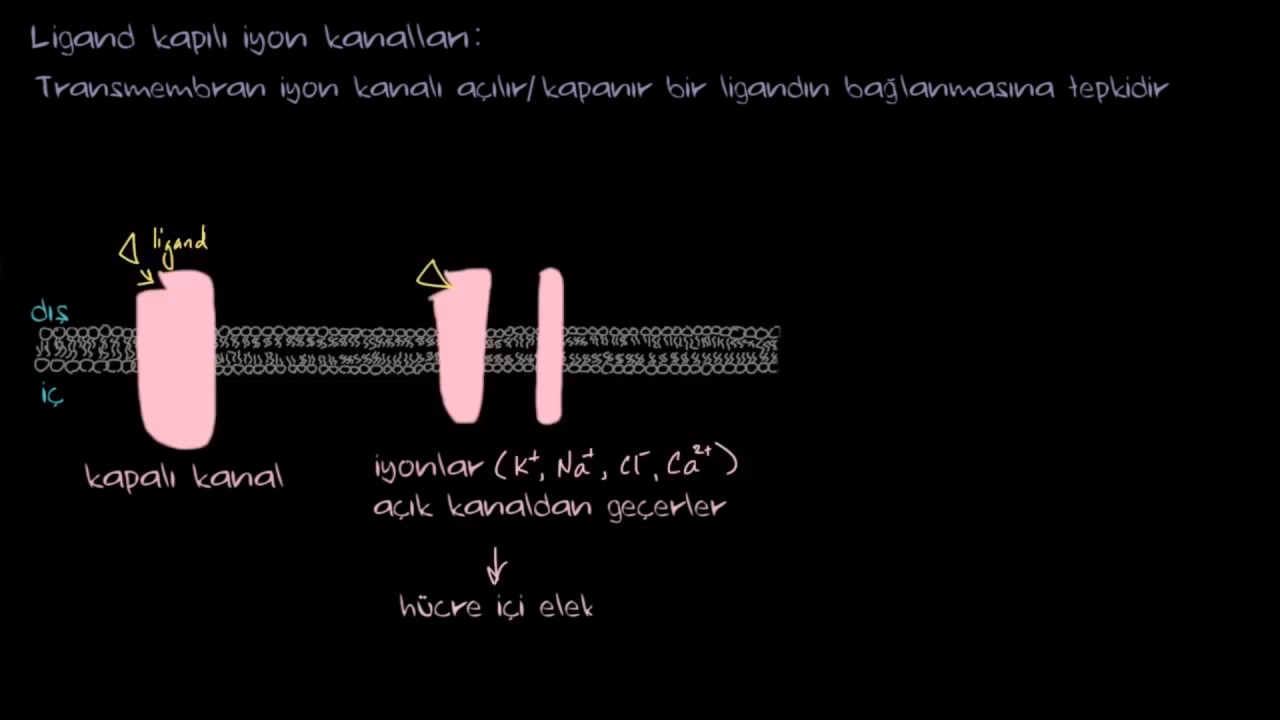 Ligand kapılı iyon kanalları:
Transmembran iyon kanalı açılır/kapanır bir ligandın bağlanmasına tepkidir
ligand
dış
iç
kapalı kanal
iyonlar (K⁺, Na⁺, Cl⁻, Ca²⁺)
açık kanaldan geçerler
hücre içi elek